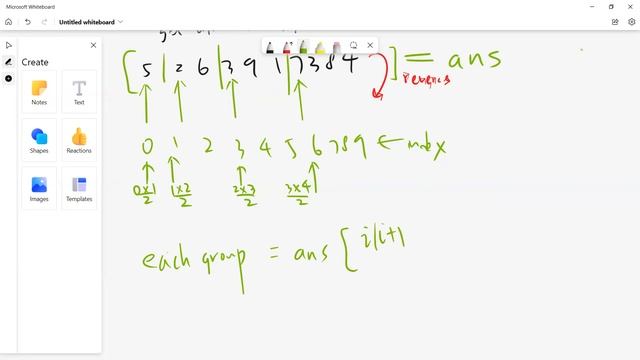 Microsoft Whiteboard
Untitled whiteboard
Create
Notes
Text
Shapes
Reactions
Images
Templates
[5|2 6|3 9 1|7384] = ans
reverses
0 1 2 3 4 5 6 7 8 9 ← index
0x1/2 1x2/2 2x3/2 3x4/2
each group = ans [i(i+1